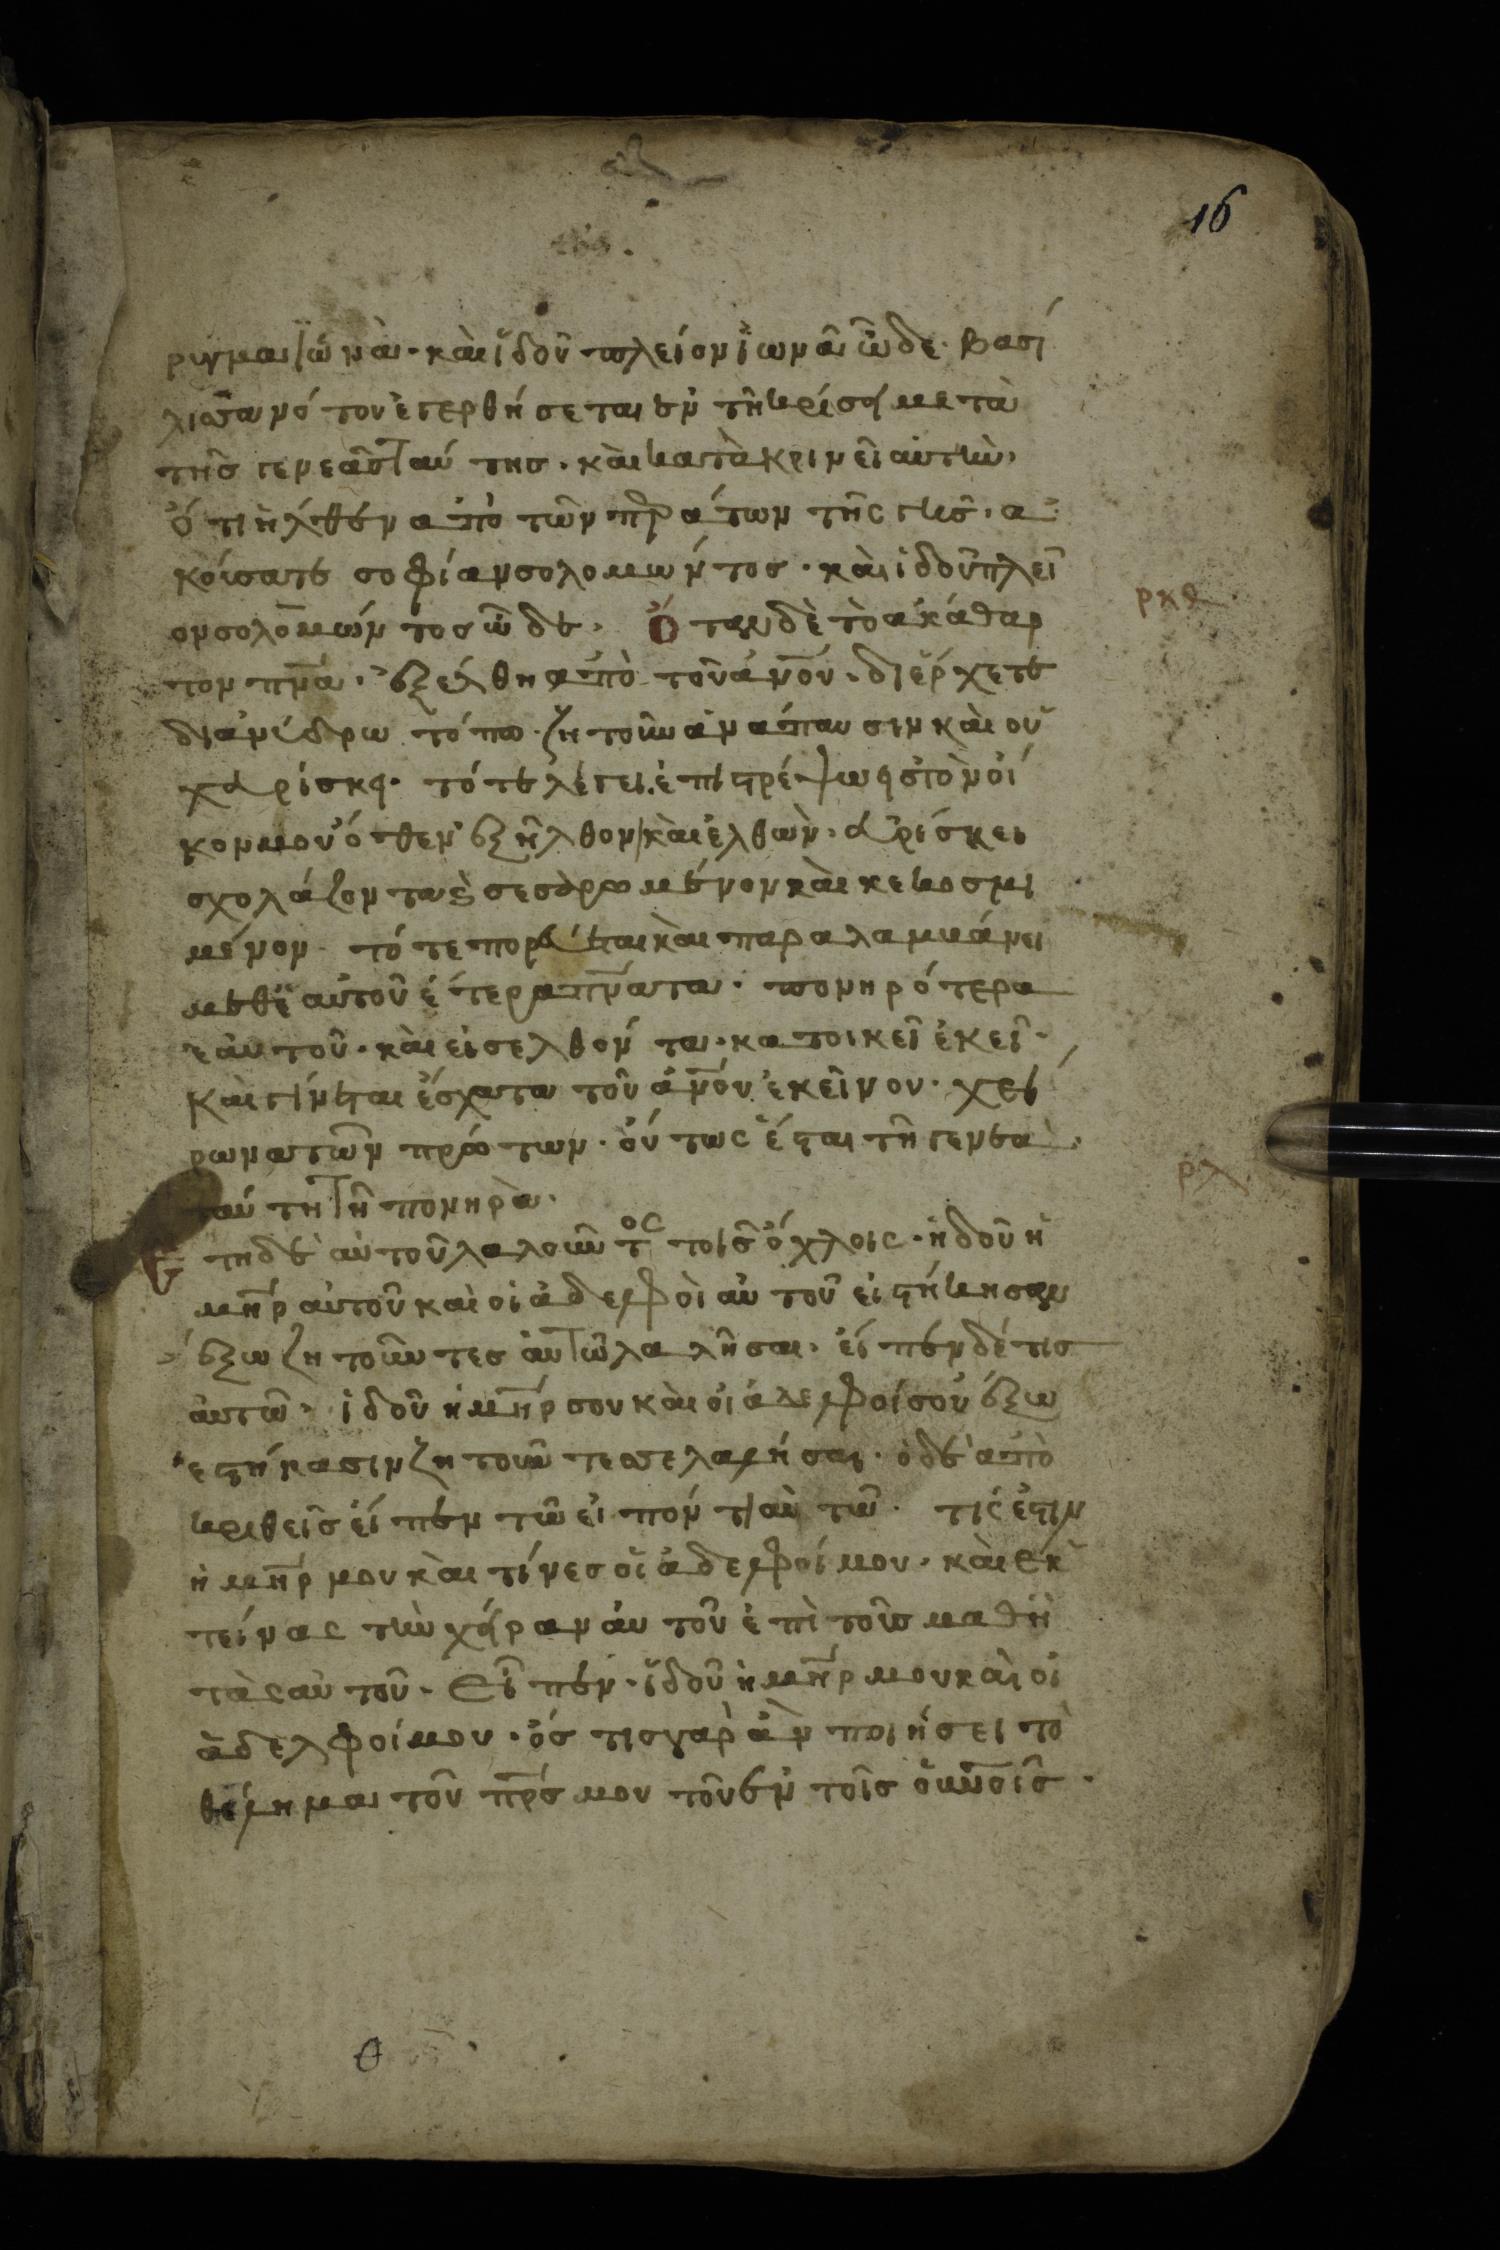 16
ρυγμα ἰωνὰ· καὶ ἰδοῦ πλεῖον ἰωνᾶ ὧδε· βασί
λισα νότου ἐγερθήσεται ἐν τῆ κρίσει μετὰ
τῆς γενεᾶς ταύτης· καὶ κατὰκρινεῖ αὐτὴν·
ὅτι ἦλθεν ἀπὸ τῶν περάτων τῆς γῆς· α
κοῖσαι σοφίαν σολομώντος· καὶ ἰδοῦ πλεῖ
ον σολομώντος ὧδε· Ὅταν δὲ τὸ ακάθαρ
ρκθ
τον πνα· ἐξέλθη ἀπὸ τοῦ ἀνου· διέρχετε
διἀνίδρω τόπω· ζητοῦν ἀνάπαυσιν καὶ οὐ
χ ευρίσκει· τότε λέγει ἐπιστρέψω εἰς τὸν οἶ
κον μου ὅθεν ἐξῆλθον καὶ ἐλθὼν· εὑρίσκει
σχολάζοντα καὶ σεσαρομένον καὶ κεκοσμι
μένον· τότε πορεύεται καὶ παραλαμμάνει
μεθ αὐτοῦ ἕτερα πνατα· πονηρότερα
εαυτοῦ· καὶ εἰσελθόντα· κατοικεῖ ἐκεῖ·
Και γίνεται ἔσχατα τοῦ ἀνου ἐκεῖνου· χεί
ρωνα τῶν πρώτων· οὕτως ἔσται τῆ γενεᾶ
ρλ
ταύτη τῆ πονηρὰ·
Ετη δὲ αὐτοῦ λαλοῦντος τοῖς ὄχλοις· ἠδοῦ ἡ
μηρ αὐτοῦ καὶ οἱ ἀδελφοὶ αὐτοῦ εἱστήκησαν
ἔξω ζητοῦντες αὐτῶ λαλῆσαι· εἶπεν δέ τις
αὐτῶ· ἰδοῦ ἡ μηρ σου καὶ οἱ ἀδελφοί σου ἔξω
ἑστήκασιν ζητοῦντες σε λαλήσαι· ὁ δὲ ἀπὸ
κριθεῖς εἶπεν τῶ εἰπόντι αὐτῶ· τίς ἐστιν
ἡ μηρ μου καὶ τίνες οἱ ἀδελφοί μου· καὶ ἐκ
τείνας τὴν χεῖραν αὐτοῦ ἐπὶ τοῦς μαθη
τὰς αὐτοῦ· Εἶπεν· ἰδοῦ ἡ μηρ μου καὶ οἱ
ἀδελφοί μου· ὅστις γαρ ἀν ποιήσει τὸ
θέλημα τοῦ πρς μου τοῦ ἐν τοῖς οὐνοις·
θ